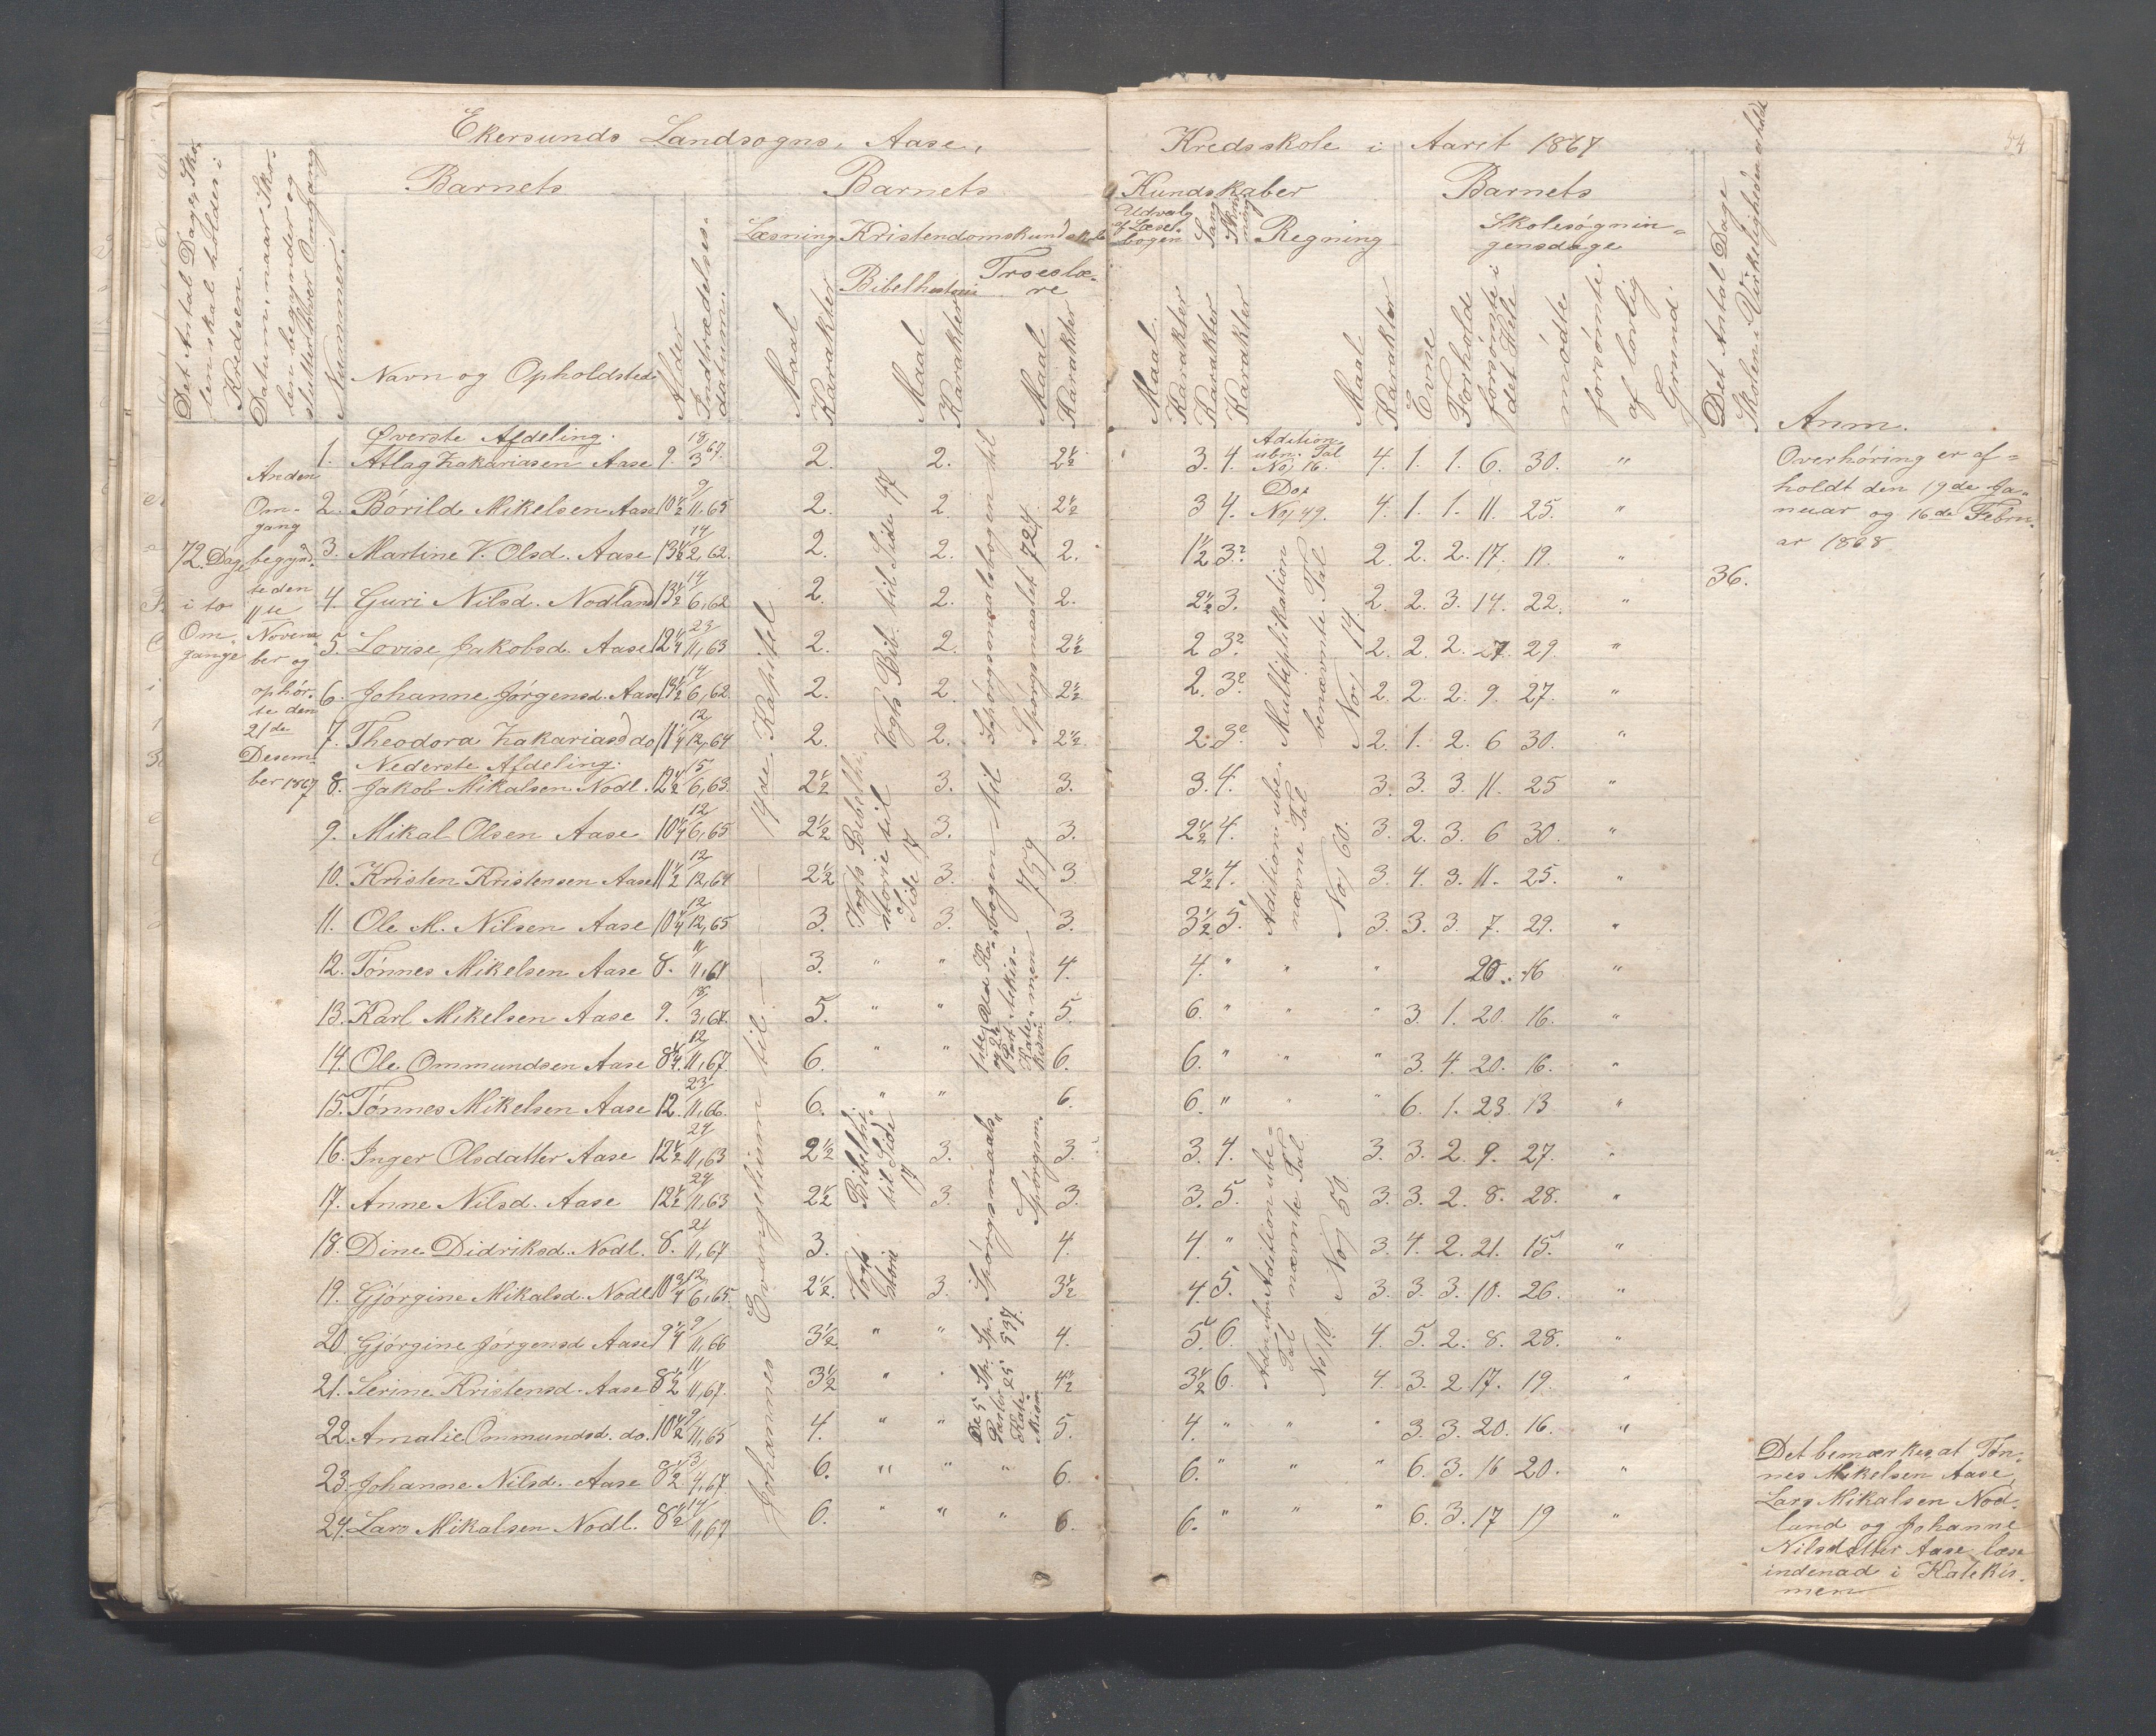 Ekersunds Landsogns, Aase, Kredsskole i Aaret 1867
44
Det Antal Dage, Sko-
len skal holdes i
Kredsen.
Datum, naar Sko-
len begynder og
slutter hver Omgang
Nummer.
Barnets
Navn og Opholdsted
Alder
Indtrædelses-
datum.
Barnets Kundskaber
Læsning
Maal
Karakter
Kristendomskundskab
Bibelhistorie
Maal
Karakter
Troeslæ-
re
Maal
Karakter
Udvalg
af Læse-
bogen
Maal.
Karakter
Sang
Karakter
Skriv-
ning
Karakter
Regning
Maal
Karakter
Barnets
Evne
Forholde
Skolesøgnin-
gensdage
forsømte i
det Hele
mødte
forsømte
af lovlig
Grund.
Det Antal Dage
Skolen i Virkeligheden er holdt
Anm.
72. Dage
i to
Om-
gange
Anden
Om-
gang
begynd-
te den
11te
Novem-
ber og
ophør-
te den
21de
Desem-
ber 1867
Øverste Afdeling.
1. Atlag Zakariasen Aase 9. 18/3 67. 2. 2. 2½ 3. 4. Adition ubn. Tal No 16. 4. 1. 1. 6. 30. "
2. Børild Mikelsen Aase 10½ 9/11,65 2. 2. 2½ 3 4. Do No 49. 4. 1. 1. 11. 25. "
3. Martine V. Olsd. Aase 13½ 14/2,62. 2. 2. 2. 1½ 3? 2. 2. 2. 17. 19. "
4. Guri Nilsd. Nodland 13½ 14/6,62 2. 2. 2. 2½ 3. 2. 2. 3. 14. 22. "
5. Lovise Jakobsd. Aase 12¼ 23/11,63 2. 2. 2½ 2 3? 2. 2. 2. 27. 29. "
6. Johanne Jørgensd. Aase 13½ 14/6,62 2. 2. 2½ 2. 3? 2. 2. 2. 9. 27. "
7. Theodora Zakariasd do 11¼ 12/12,64 2. 2. 2½ 2. 3? 2. 1. 2. 6 30. "
Nederste Afdeling.
8. Jakob Mikalsen Nodl. 12½ 15/6,63. 2½ 3. 3. 3. 4. 3. 3. 3. 11. 25 "
9. Mikal Olsen Aase 10¼ 12/6,65 2½ 3. 3. 2½ 4. 3. 2. 3. 6 30. "
10. Kristen Kristensen Aase 11½ 12/12,64 2½ 3. 3 2½ 4. 3. 4. 3. 11. 25. "
11. Ole M. Nilsen Aase 10¼ 12/12,65 3. 3. 3. 3½ 5. 3. 3. 3. 7. 29. "
12. Tønnes Mikelsen Aase 8. 11/11,67 3. " " 4. 4. " " " 20. 16 "
13. Karl Mikelsen Aase 9. 18/3,67. 5. " " 5. 6. " " 3. 1. 20. 16. "
14. Ole Ommundsen Aase 8¼. 12/11,67. 6. " " 6. 6. " " " 3. 4. 20. 16. "
15. Tønnes Mikelsen Aase 12. 23/11,66. 6. " " 6. 6. " " " 6. 1. 23. 13 "
16. Inger Olsdatter Aase 12½ 24/11,63 2½ 3. 3. 3. 4. 3. 3. 2. 9. 27. "
17. Anne Nilsd. Aase 12½ 24/11,63 2½ 3. 3. 3. 5. 3. 3. 2. 8. 28. "
18. Dine Didriksd. Nodl. 8. 21/11,67 3. 4. 4. " 3. 4. 2. 21. 15. "
19. Gjørgine Mikalsd. Nodl 10¾ 12/6,65. 2½. 3. 3½ 4. 5. 3. 3. 3. 10. 26. "
20. Gjørgine Jørgensd Aase 9¼ 9/11,66 3½ " " 4. 5. 6. 4. 5. 2. 8. 28. "
21. Serine Kristensd. Aase 8½ 11/11,67. 3½ " " 4½ 3½ 6. 4. 3. 2 17. 19. "
22. Amalie Ommundsd. do. 10½ 9/11,65 4. " " 5. 4. " " " 3. 3. 20. 16. "
23. Johanne Nilsd. Aase 8½ 3/4,67. 6. " " " 6. 6. " " " 6. 3. 16 20. "
24. Lars Mikalsen Nodl. 8½ 14/11,67 6. " " " 6. 6. " " " 6. 3. 17 19 "
Johannes Evangelium til — 14de Kapitel
Vogts Bib. til Side 97
Vogts Bibelhi-
storie til
Side 17
Vogts Bibelhi-
storie til Side
17
Spørgsmaalsbogen til
Spørgsmaalet 724.
bogen til
759
Spørgsmaals-
Spørgsm.
537.
Multiplikation
benævnte Tal
No 14.
Adition ube-
nævne Tal
No 60.
Adition ube-
nævnte Tal
No 50.
Tal
No 10.
36.
Overhøring er af-
holdt den 19de Ja-
nuar og 16de Febru-
ar 1868
Det bemærkes, at Tøn-
nes Mikelsen Aase,
Lars Mikalsen Nod-
land og Johanne
Nilsdatter Aase læse
indenad i Katekis-
men